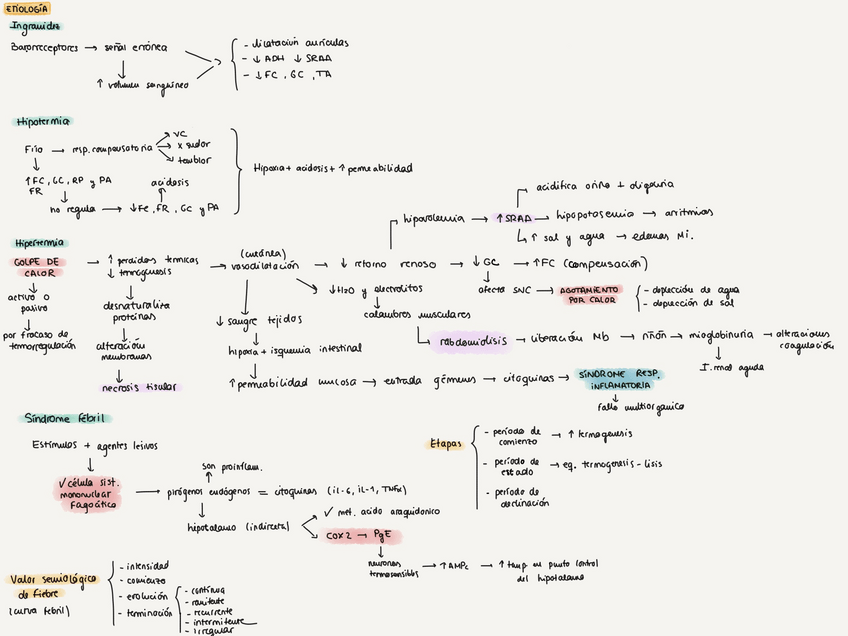 ETIOLOGÍA
Ingravidez
Barorreceptores → señal errónea
↑ volumen sanguíneo
- dilatación aurículas
- ↓ ADH ↓ SRAA
- ↓ FC, GC, TA
Hipotermia
Frío → resp. compensatoria
VC
x sudor
temblor
↑ FC, GC, RP y PA
FR
acidosis
no regula → ↓ FC, FR, GC y PA
Hipoxia + acidosis + ↑ permeabilidad
acidifica orina + oliguria
hipovolemia → ↑ SRAA → hipopotasemia → arritmias
↑ sal y agua → edemas Mi.
Hipertermia
GOLPE DE
CALOR
→ ↑ perdidas termicas
↓ termogenesis
(cutánea)
→ vasodilatación → ↓ retorno venoso → ↓ GC → ↑ FC (compensación)
activo o
pasivo
por fracaso de
termorregulación
desnaturaliza
proteínas
alteración
membranas
necrosis tisular
↓ H2O y electrolitos
calambres musculares
afecta SNC → AGOTAMIENTO
POR CALOR
- depleción de agua
- depleción de sal
↓ sangre tejidos
hipoxia + isquemia intestinal
rabdomiolisis → liberación Mb → riñón → mioglobinuria → alteraciones
coagulación
I. renal aguda
↑ permeabilidad mucosa → entrada gérmenes → citoquinas → SÍNDROME RESP.
INFLAMATORIA
fallo multiorganico
Síndrome febril
Estímulos + agentes lesivos
√ célula sist.
mononuclear
fagocítico
son proinflam.
pirógenos endógenos = citoquinas (il-6, il-1, TNFα)
hipotalamo (indirecta)
√ met. acido araquidonico
COX2 → PgE
neuronas
termosensibles
→ ↑ AMPc → ↑ temp en punto control
del hipotalamo
Etapas
- período de
comienzo
→ ↑ termogenesis
- período de
estado
→ eq. termogenesis - lisis
- período de
declinación
Valor semiológico
de fiebre
(curva febril)
- intensidad
- comienzo
- evolución
- terminación
- continua
- remitente
- recurrente
- intermitente
- irregular